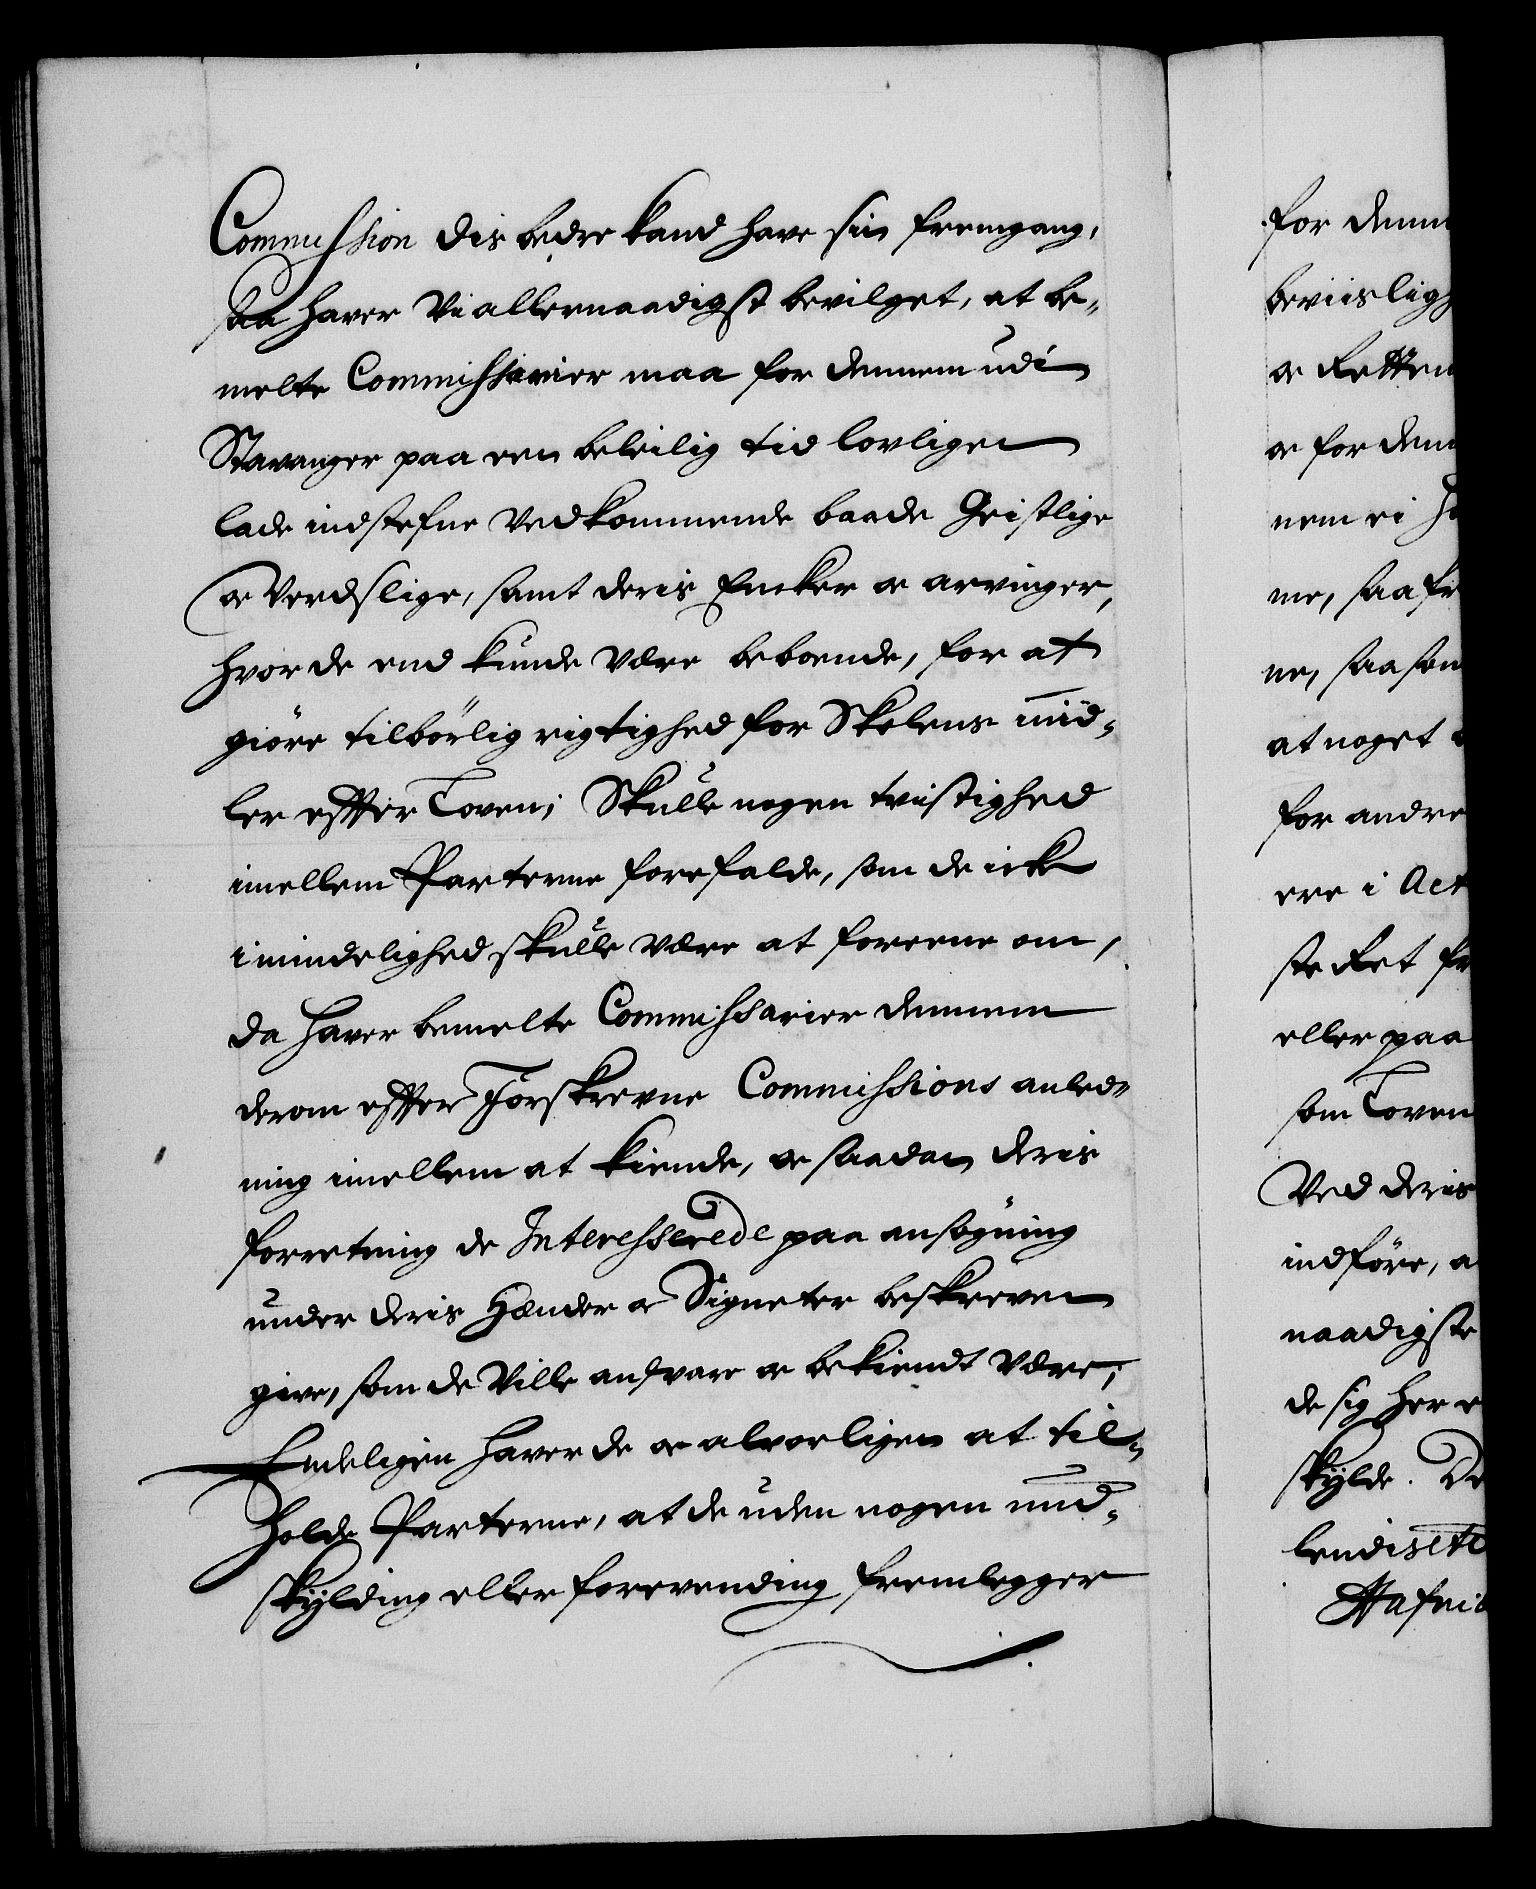 Commission dis bedre kand have sin fremgang,
saa haver Vi allernaadigst bevilget, at be-
melte Commissarier maa for dennem udi
Stavanger paa een beleilig tid lovligen
lade indstefne Vedkommende baade Geistlige
oc Verdslige, samt deris Encker oc arvinger,
hvor de end kunde være beboende, for at
giöre tilbörlig rigtighed for Skolens mid-
ler effter Loven; Skulle nogen tvistighed
imellem Parterne forefalde, som de icke
i mindelighed skulle være at foreene om,
da haver bemelte Commissarier dennem
derom effter Forskrevne Commissions anled-
ning imellem at kiende, oc saadan deris
forretning de Interesserede paa ansögning
under deris Hænder oc Signeter beskreven
give, som de Ville ansvare oc bekiendt Være;
Endeligen haver de oc alvorligen at til-
holde Parterne, at de uden nogen und-
skylding eller forevending fremlegger
for denne
beviislig
oc Retten
oc for den
nem ei
me, saa
ne, saa som
at noget
for andre
ere i Act
ste Ret
eller paa
som Loven
Ved deris
indföre, a
naadigste
de sig her e
skylde. De
lendis
Hafni